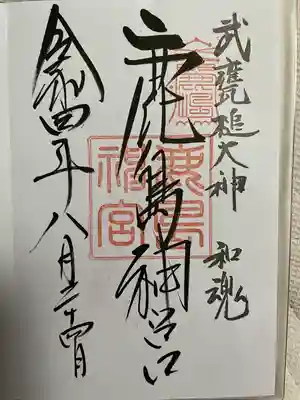 武甕槌大神 和魂
鹿島神宮
令和四年八月二十四日